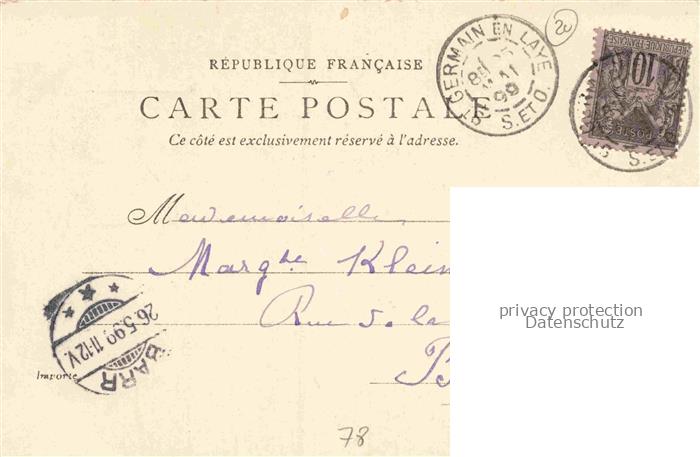 RÉPUBLIQUE FRANÇAISE
CARTE POSTALE
Ce côté est exclusivement réservé à l'adresse.
ST GERMAIN EN LAYE
MAI
99
S. ET O.
20
RÉPUBLIQUE FRANÇAISE
10
POSTES
S. ET
Mademoiselle
Margte Klein
Rue de la
BARR
26.5.99. 11-12V.
Importe
78
privacy protection
Datenschutz